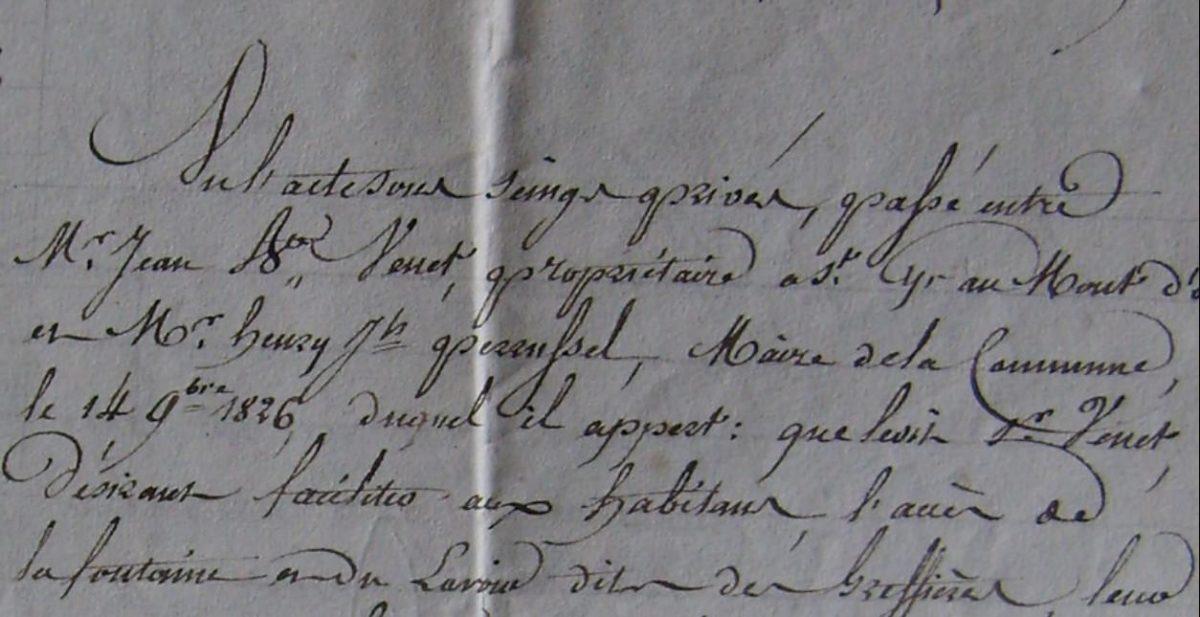 Vu l'acte sous seings privés, passé entre
Mr. Jean Venet, propriétaire a St. Cyr au Mont d'
et Mr. henry Jh perrussel, Maire de la Commune,
le 14 9bre 1826, duquel il appert: que ledit Sr Venet,
Désirant faciliter aux habitans l'accès de
la fontaine et du Lavoir dits des Greffières, leur